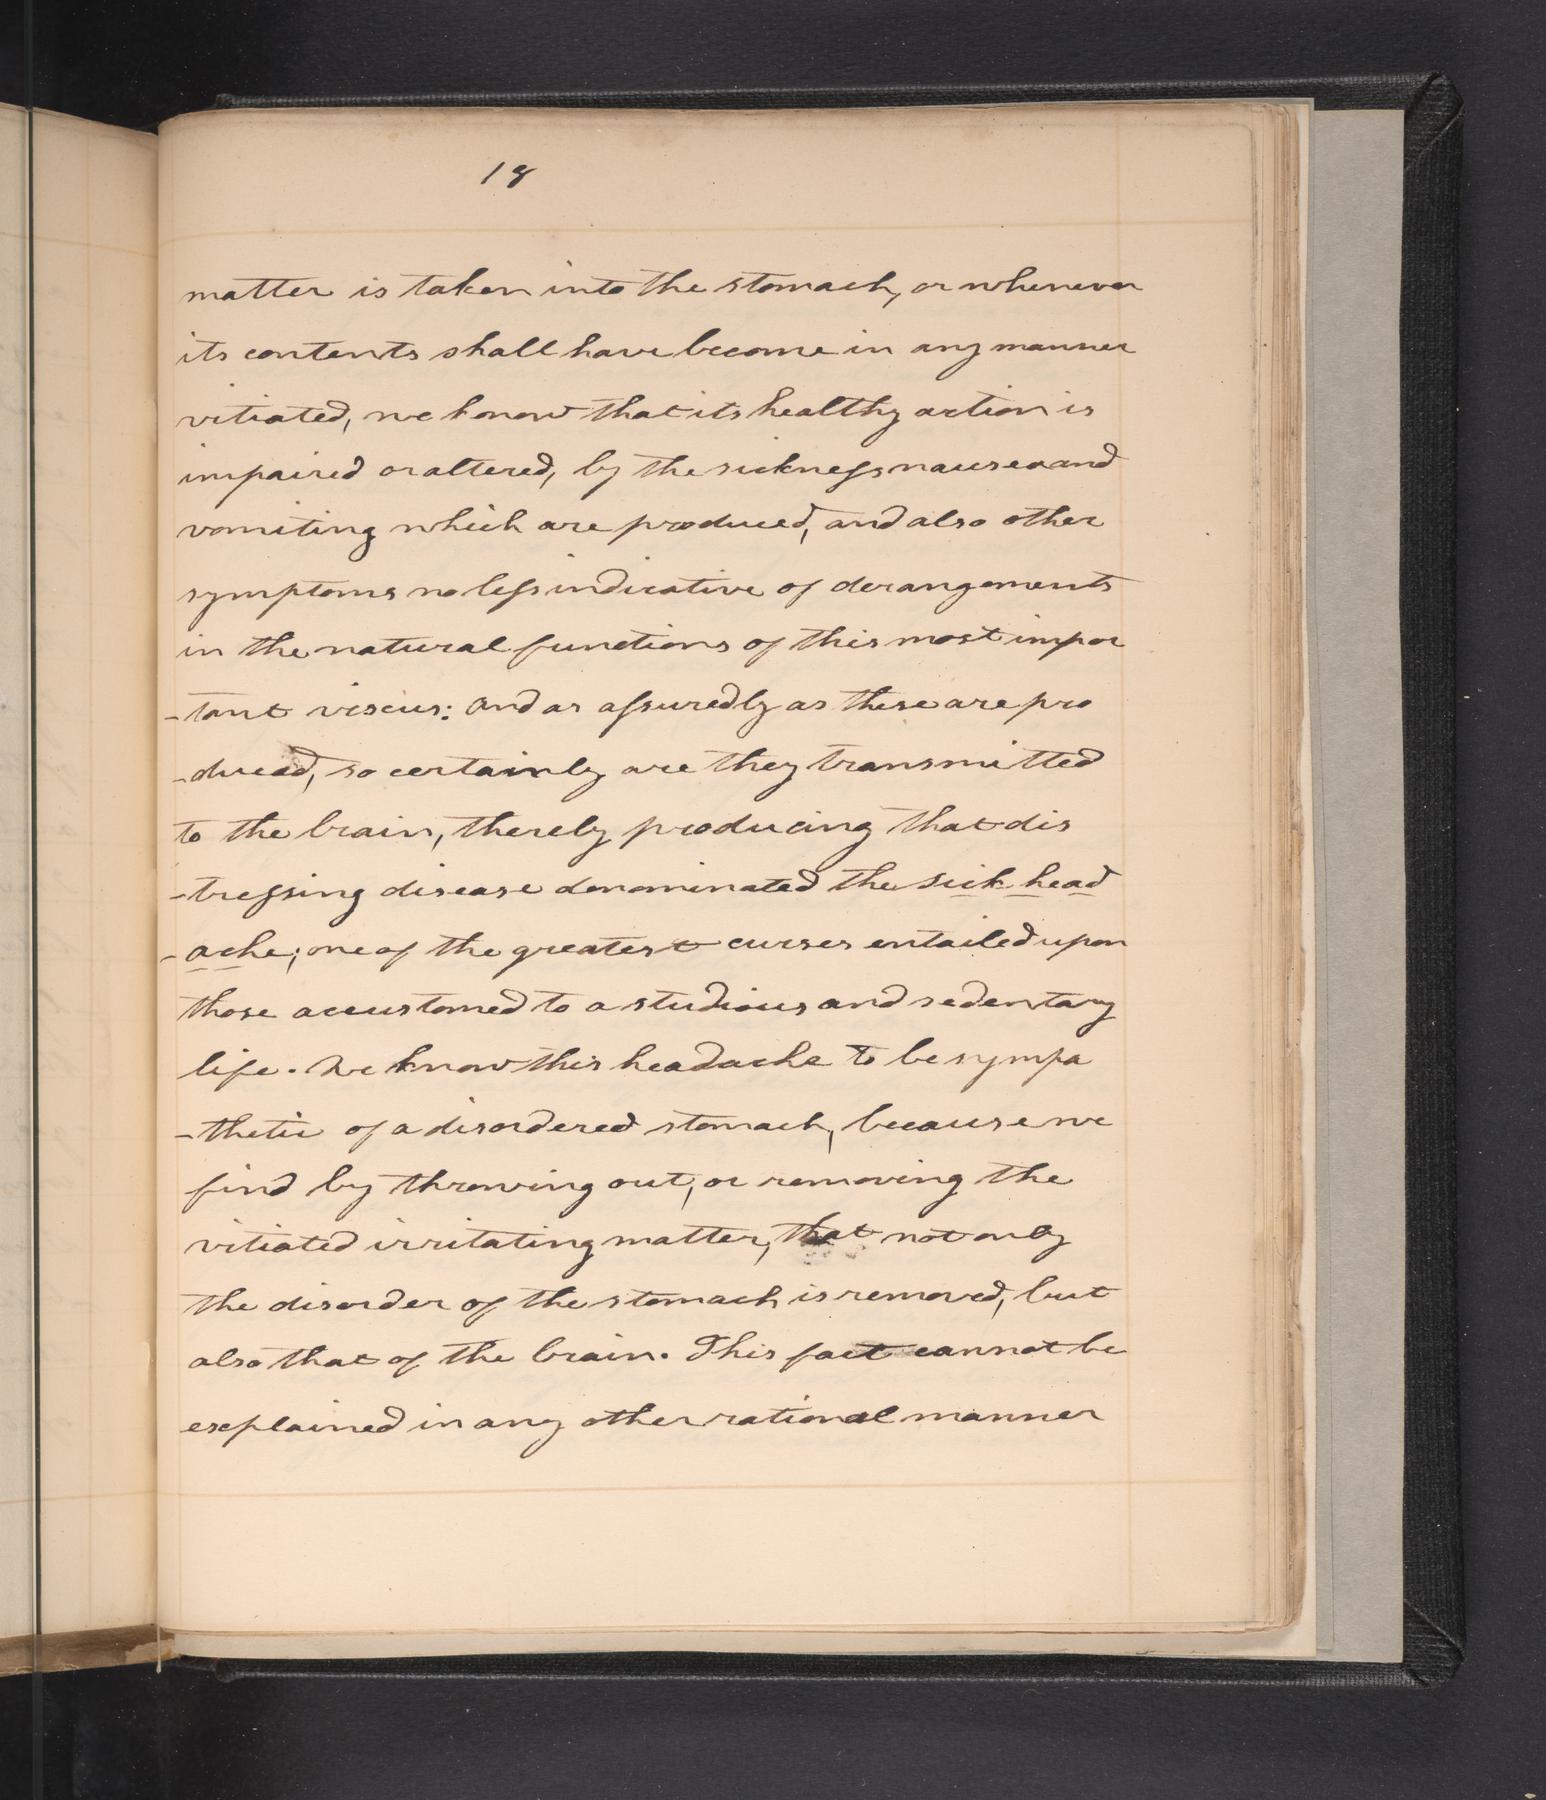 18
matter is taken into the stomach, or whenever
its contents shall have become in any manner
vitiated, we know that its healthy action is
impaired or altered, by the sickness nausea and
vomiting which are produced, and also other
symptoms no less indicative of derangements
in the natural functions of this most impor
-tant viscus: and as assuredly as these are pro
-duced, so certainly are they transmitted
to the brain, thereby producing that dis
-tressing disease denominated the sick head
-ache; one of the greatest curses entailed upon
those accustomed to a studious and sedentary
life. We know this headache to be sympa
-thetic of a disordered stomach, because we
find by throwing out, or removing the
vitiated irritating matter, that not only
the disorder of the stomach is removed, but
also that of the brain. This fact cannot be
explained in any other rational manner